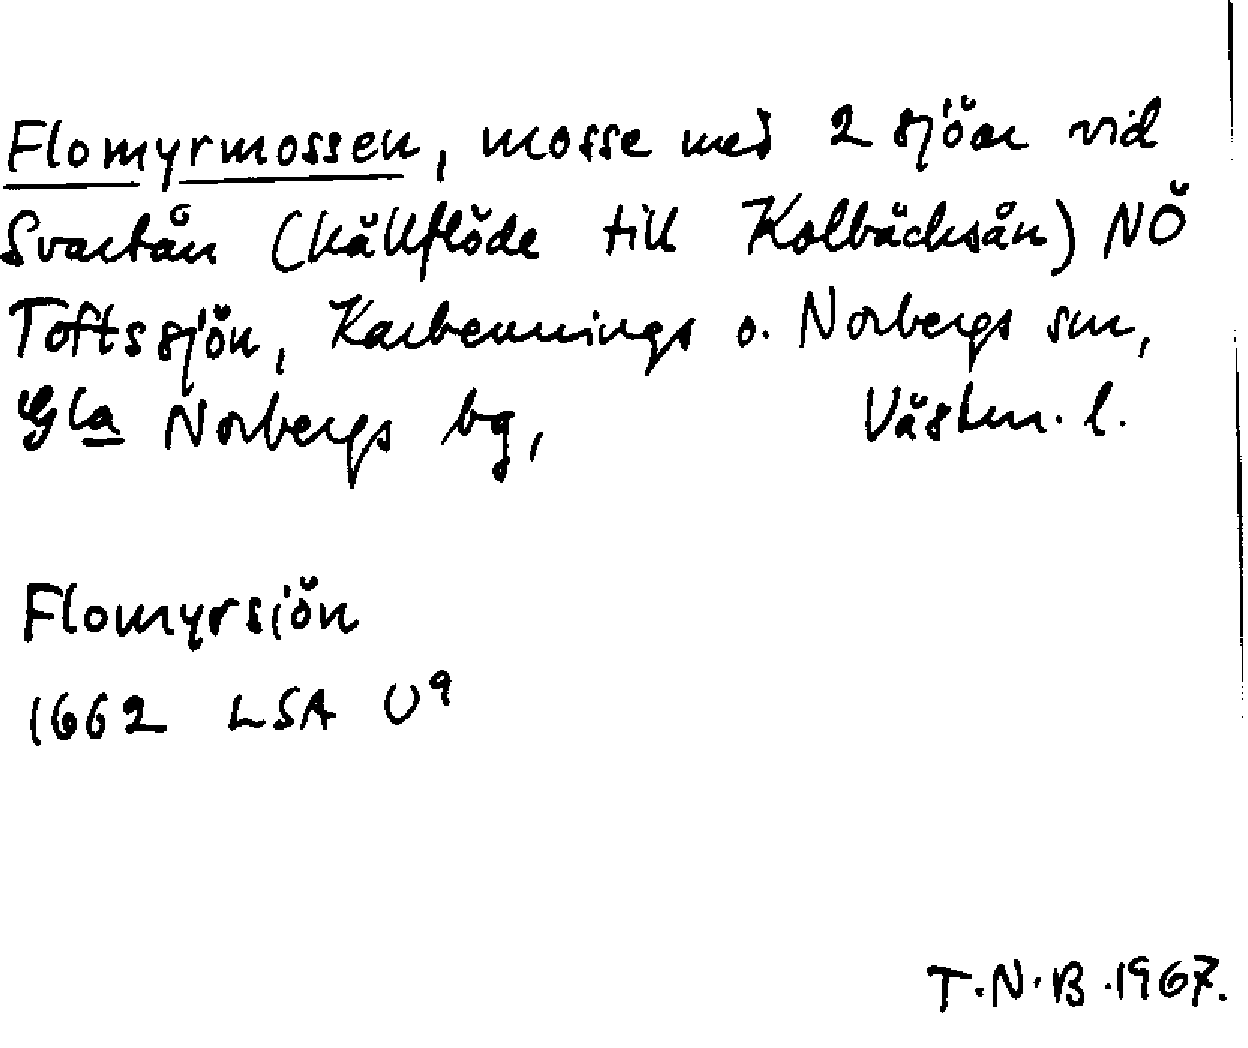 Flomyrmossen, mosse med 2 sjöar vid
Svartån (källflöde till Kolbäcksån) NÖ
Toftssjön, Karbennings o. Norbergs snr,
Gla Norbergs bg, Västm. l.
Flomyrsiön
1662 LSA U9
T.N.B. 1967.